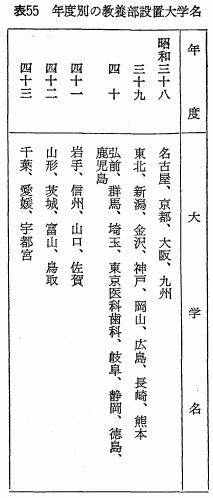 表55 年度別の教養部設置大学名
年度
大学名
昭和三十八
名古屋、京都、大阪、九州
三十九
東北、新潟、金沢、神戸、岡山、広島、長崎、熊本
四十
弘前、群馬、埼玉、東京医科歯科、岐阜、静岡、徳島、
鹿児島
四十一
岩手、信州、山口、佐賀
四十二
山形、茨城、富山、鳥取
四十三
千葉、愛媛、宇都宮